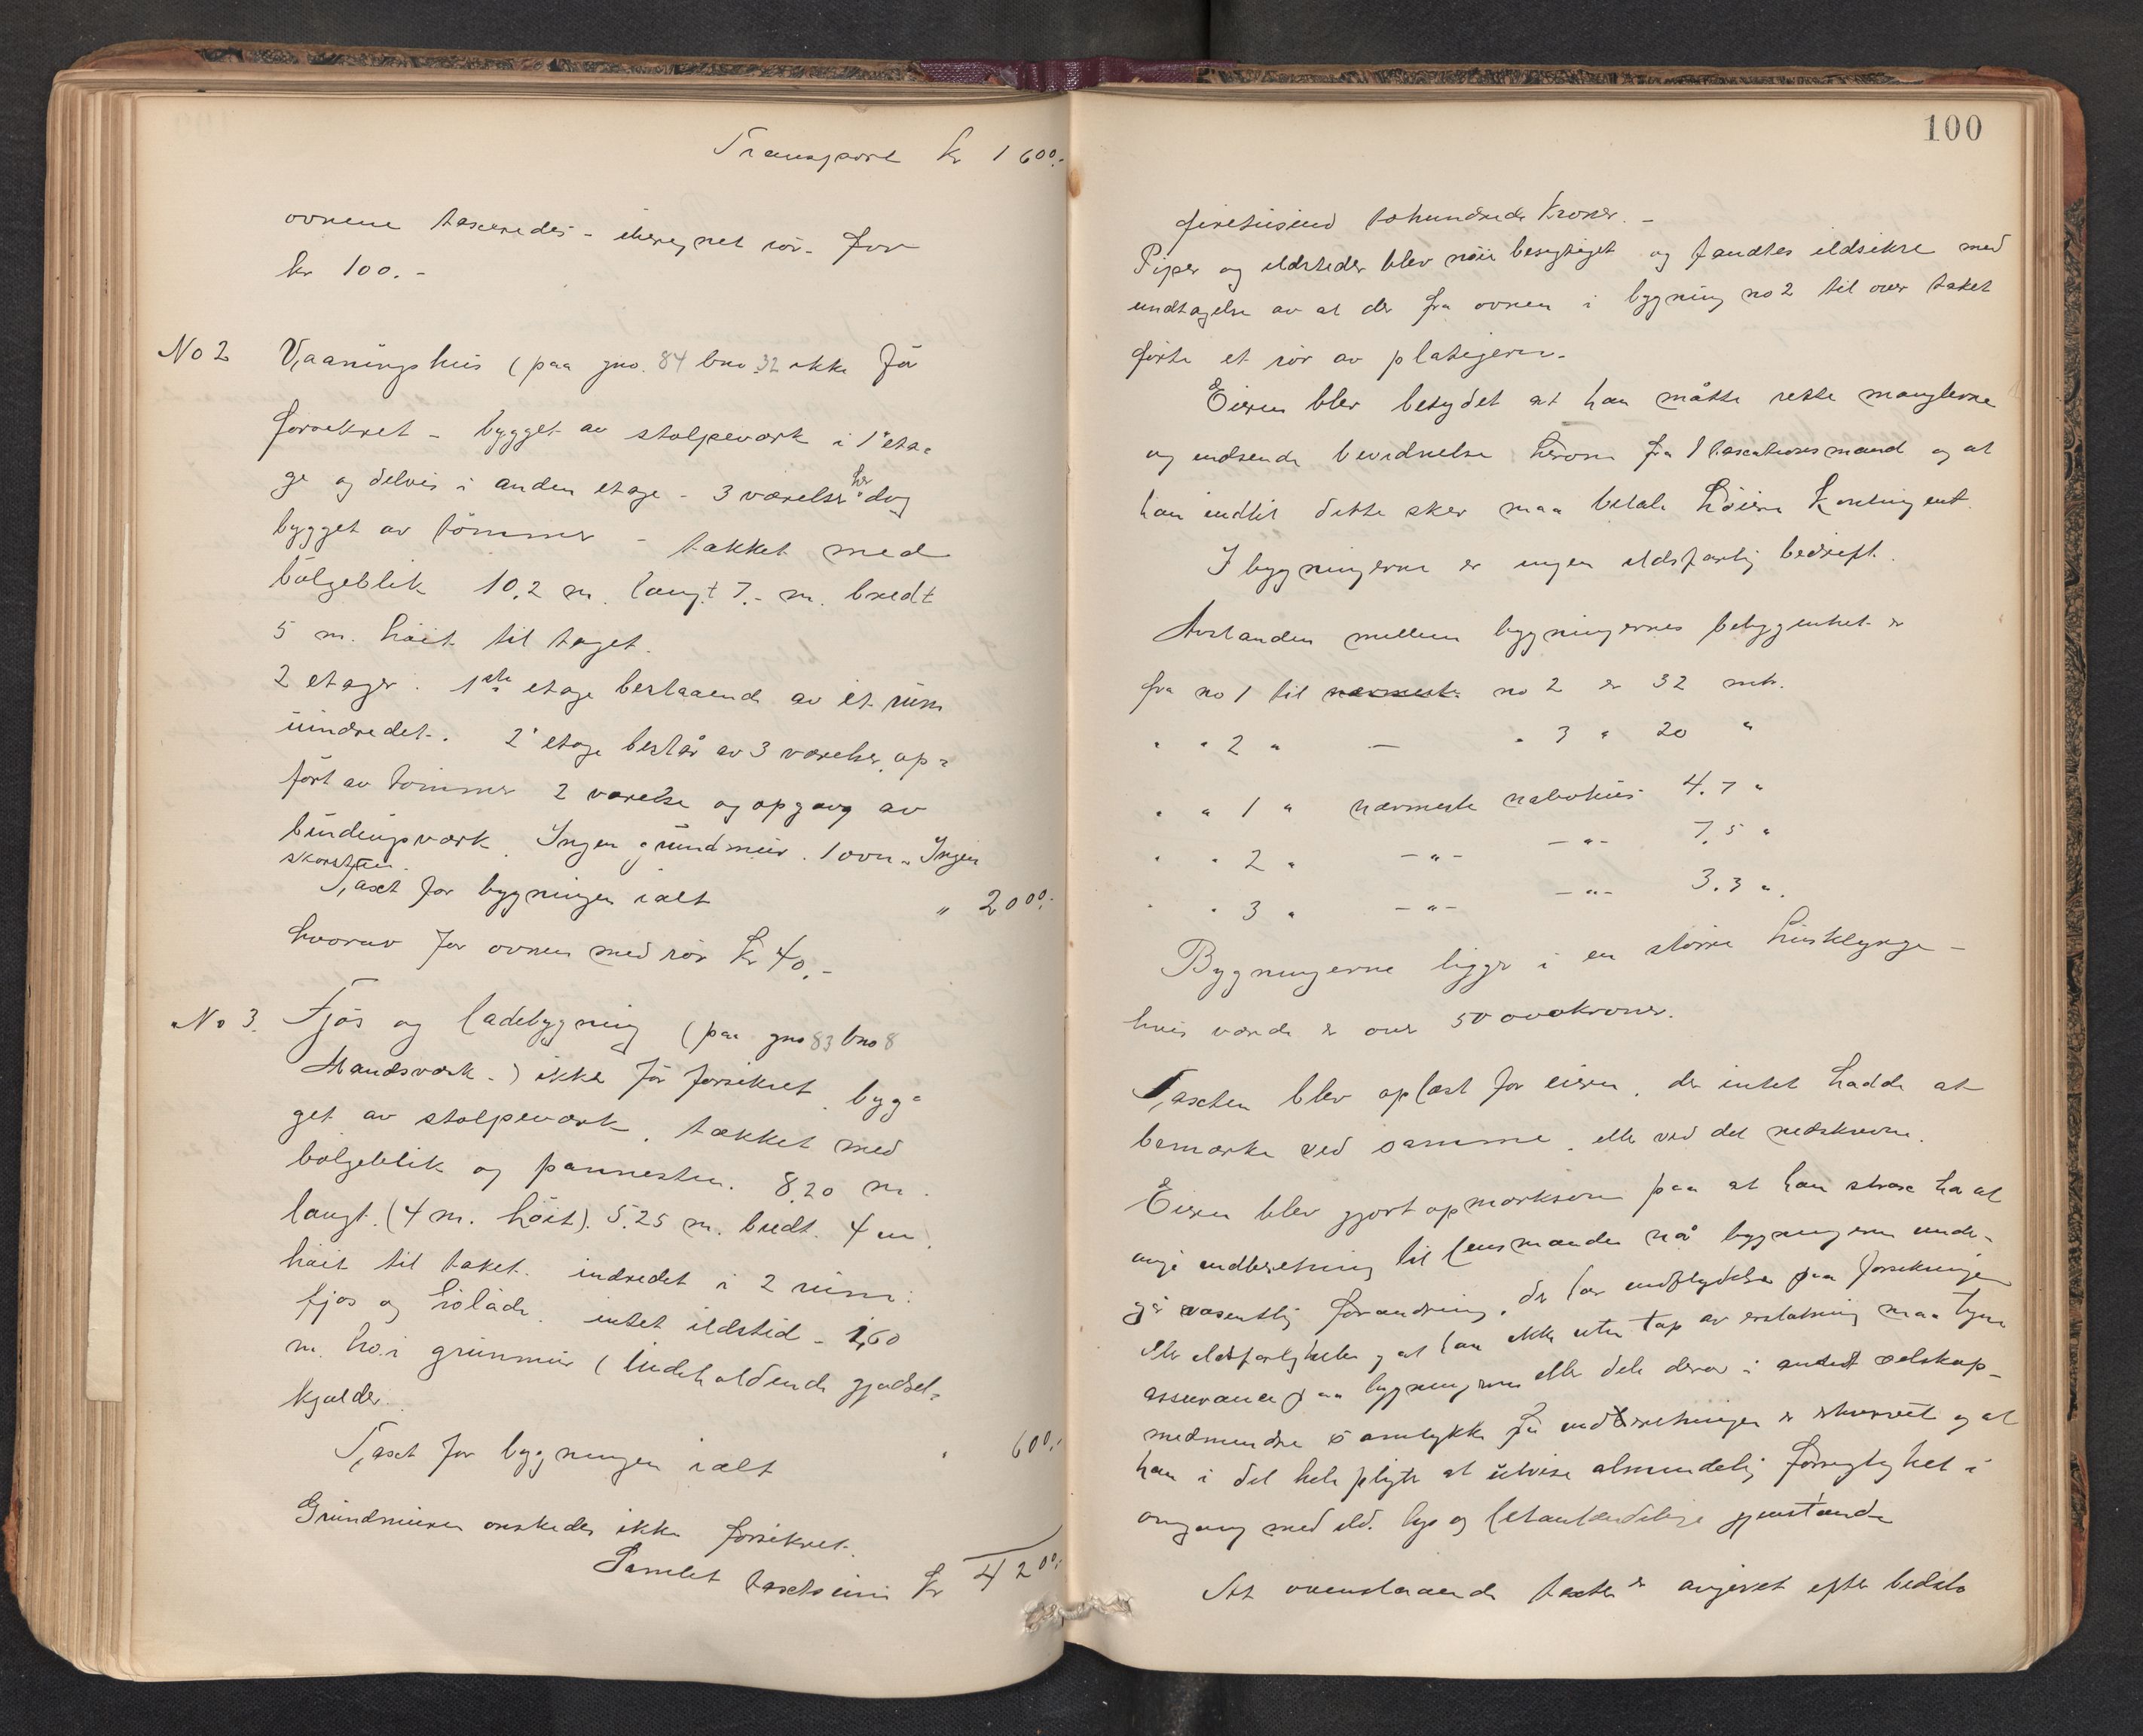 Transport kr 1600.-
ovnene taxeredes - iberegnet rör - for
kr 100.-
No 2 Vaaningshus (paa gno. 84 bno 32 ikke för
forsikret - bygget av stolpeverk i 1ste eta=
ge og delvis i anden etage - 3 værelser her dog
bygget av tömmer - takket med
bölgeblik 10,2 m. langt 7.- m. bredt
5 m. höit til taget.
2 etager. 1ste etage bestaaende av et rum
uindredet. 2' etage består av 3 værelser, op=
fört av tömmer 2 værelse og opgang av
bindingsværk. Ingen grundmur. 1 ovn. Ingen
skorsten.
Taxt for bygningen ialt " 2000.-
hvorav for ovnen med rör kr 40.-
No 3. Fjös og ladebygning (paa gno 83 bno 8
Mandsverk.) ikke för forsikret, byg=
get av stolpeverk, tækket med
bölgeblik og pannesten. 8,20 m.
langt. (4 m. höit). 5,25 m. bredt. 4 m.
höit til taket. indredet i 2 rum:
fjös og hölade. intet ildsted - 1,60
m. hö.i grunmur (indeholdende gjödsel=
kjælder.
Taxt for bygningen ialt " 600.-
Grundmuren önskedes ikke forsikret.
Samlet taxtsum kr 4200.-
100
firetusind tohundrede kroner. -
Piper og ildsteder blev nöie besigtiget og fandtes ildsikre med
undtagelse av at der fra ovnen i bygning no 2 til over taket
förte et rör av platejern.
Eieren blev betydet at han måtte rette manglerne
og indsende bevidnelse herom fra 1 taxationsmand og at
han indtil dette sker maa betale höiere kontingent.
I bygningerne er ingen ildsfarlig bedrift.
Avstanden mellem bygningernes bebyggenhet er
fra no 1 til nærmeste no 2 er 32 mtr.
" " 2 " — " 3 " 20 "
" " 1 " nærmeste nabohus 4.7 "
" " 2 " -"- -"- 7,5 "
" " 3 " -"- -"- 3.3 ".
Bygningerne ligger i en större husklynge -
hvis værde er over 50 000 kroner.
Taxten blev oplæst for eieren, der intet hadde at
bemærke ved samme, eller ved det nedskrevne.
Eieren blev gjort opmerksom paa at han strax har at
ingi indberetning til lensmanden når bygningerne under-
går væsentlig forandring, der har indflydelse paa forsikringen
eller ildsfarligheten og at han ikke uten tap av erstatning maa tegne
assurance paa bygningerne eller dele derav i andet selskap -
medmindre samtykke på indberetningen er erhvervet og at
han i det hele pligter at utvise almindelig forsigtighet i
omgang med ild. lys og letantændelige gjenstande
At ovenstaaende taxter er avgivet efter bedste